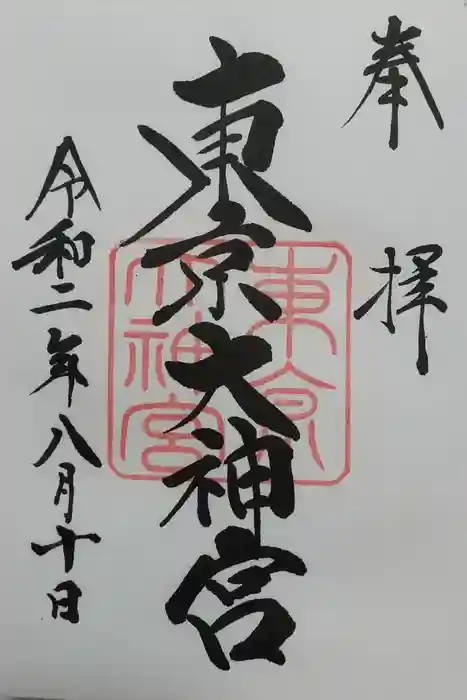 奉拝
東京大神宮
東京
大神宮
令和二年八月十日